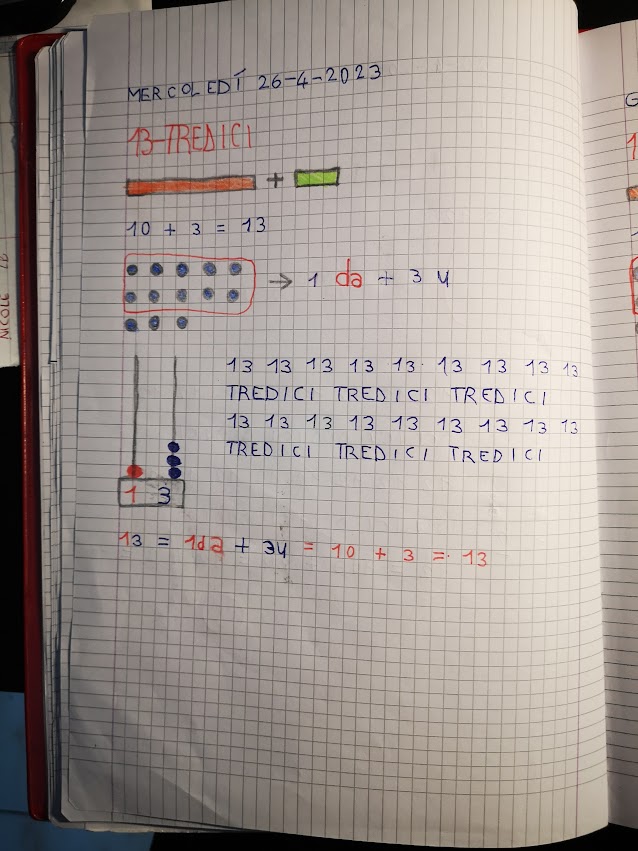 MERCOLEDÍ 26-4-2023
13-TREDICI
+
10 + 3 = 13
→ 1 da + 3 u
13 13 13 13 13 13 13 13 13
TREDICI TREDICI TREDICI
13 13 13 13 13 13 13 13 13
TREDICI TREDICI TREDICI
1 3
13 = 1da + 3u = 10 + 3 = 13
NICOLE